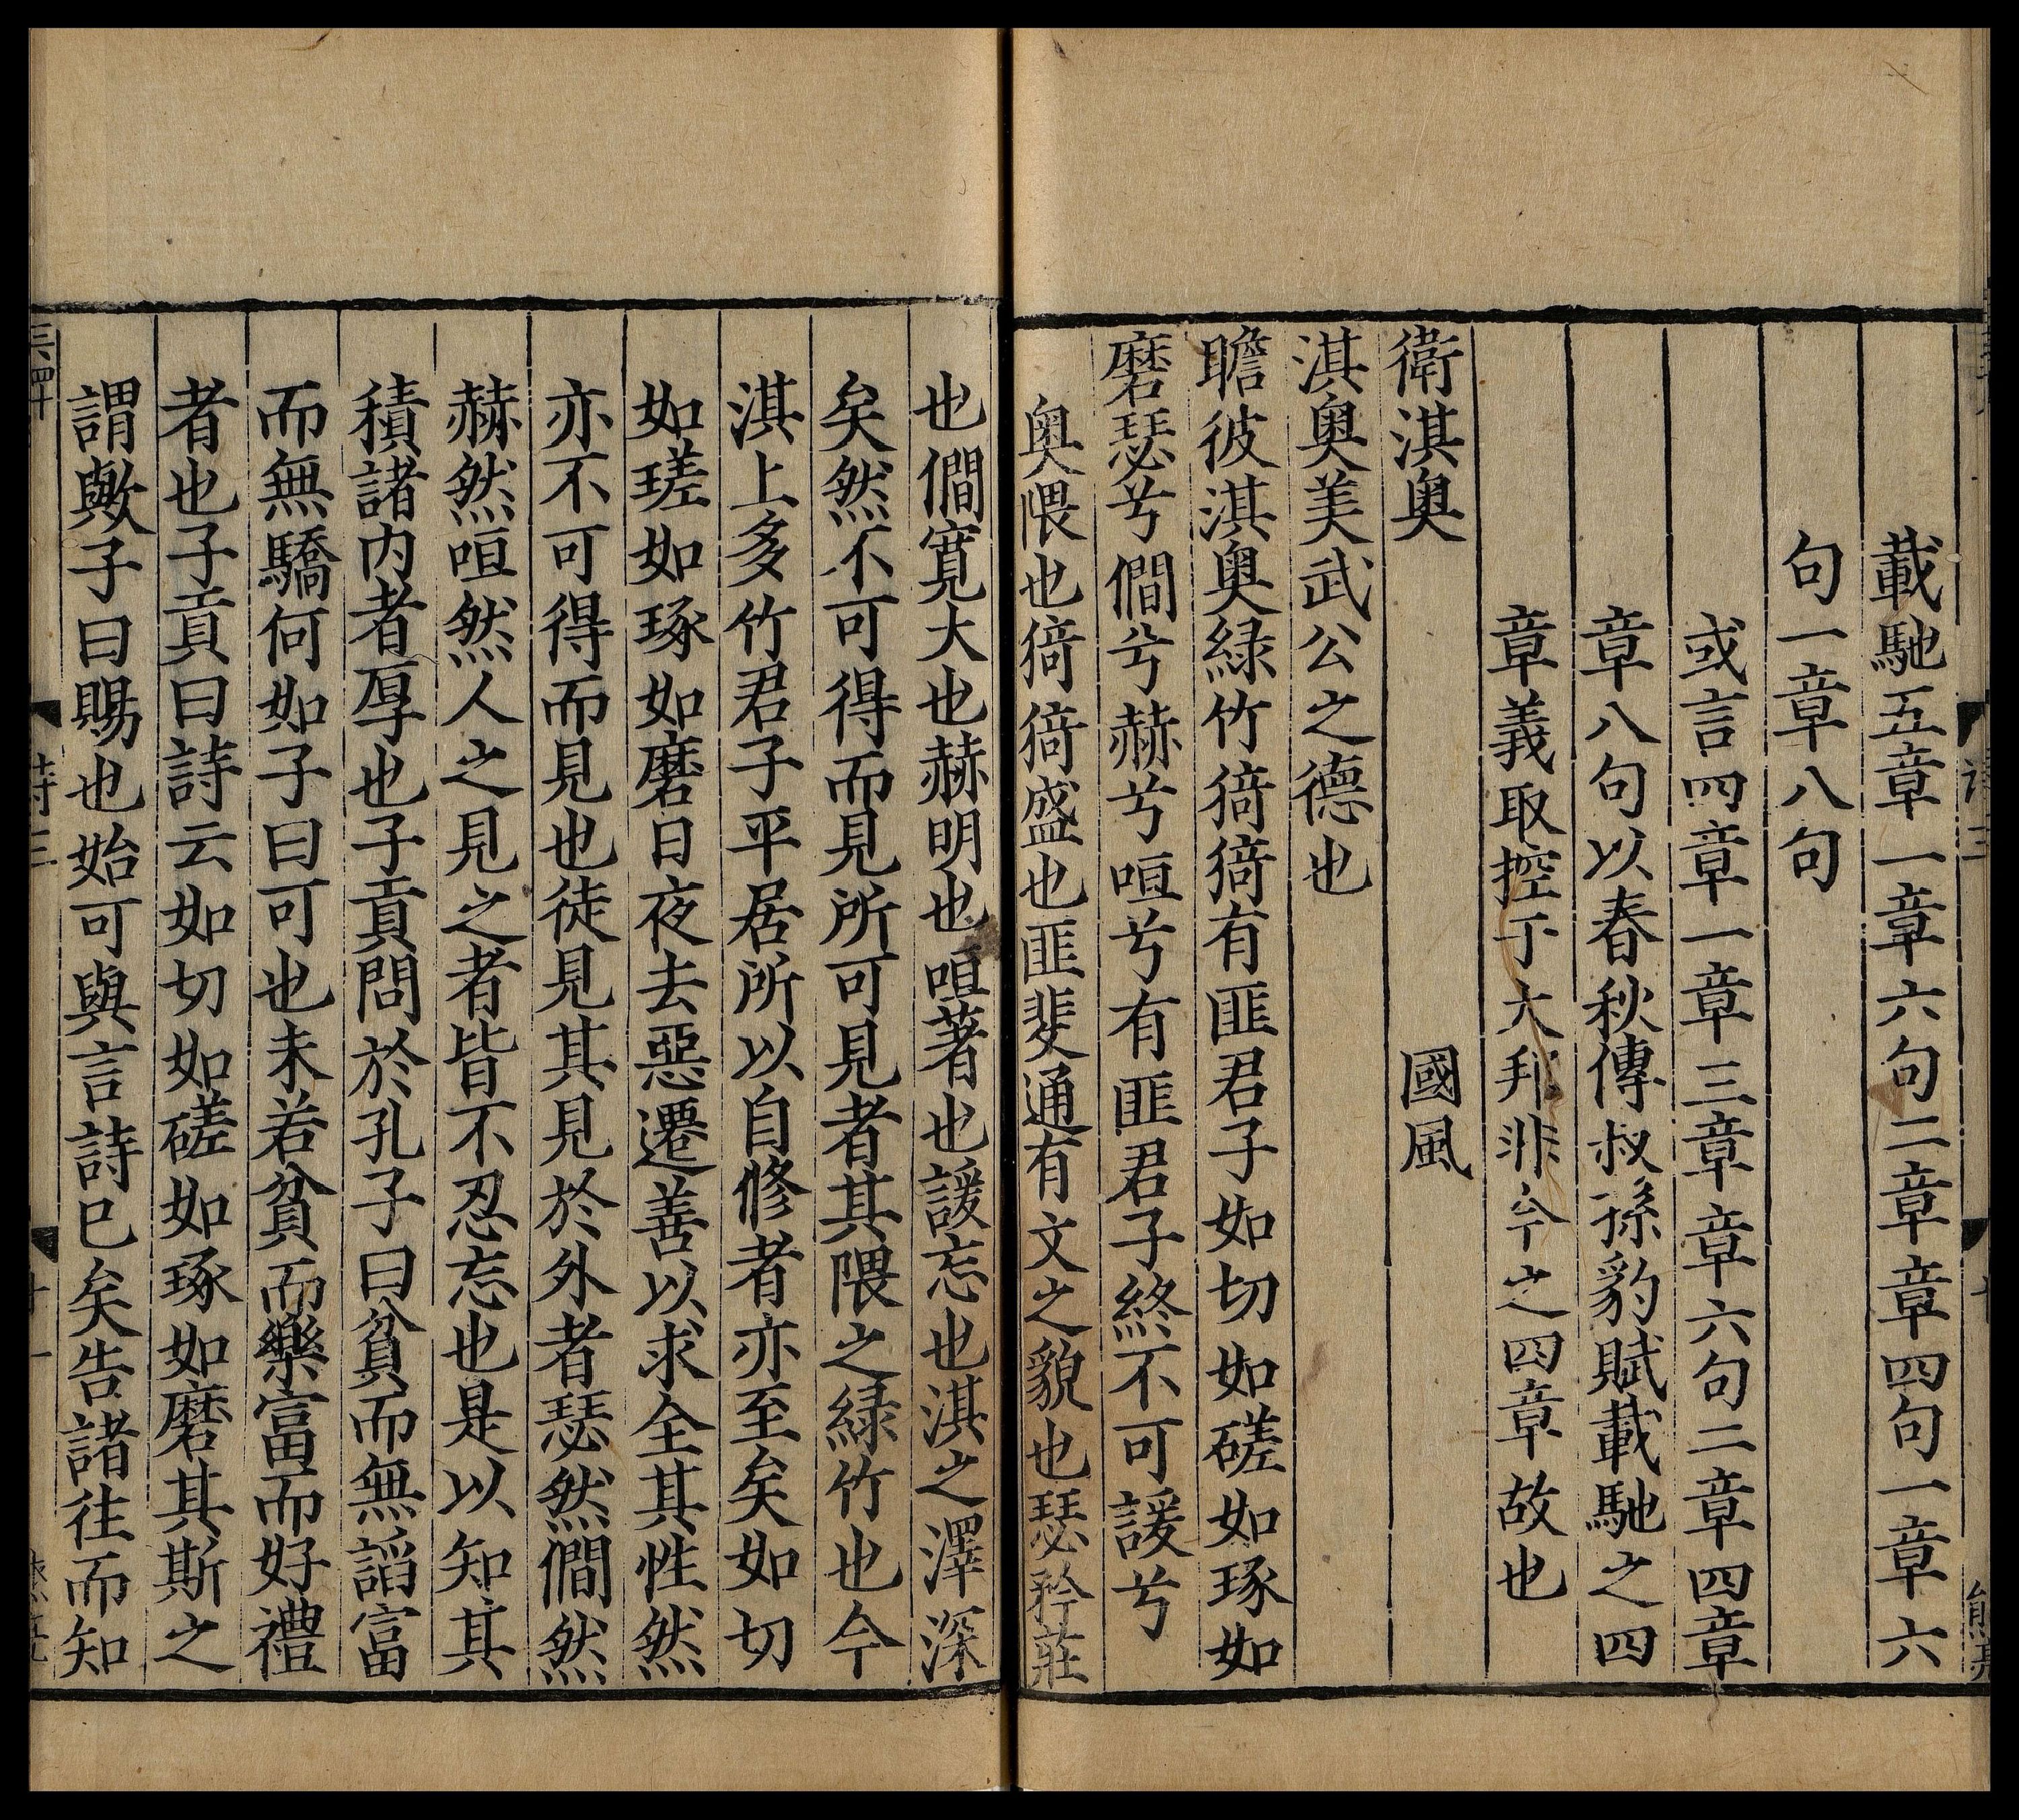 載馳五章一章六句二章章四句一章六
句一章八句
或言四章一章三章章六句二章四章
章八句以春秋傳叔孫豹賦載馳之四
章義取控于大邦非今之四章故也
衛淇奧 國風
淇奧美武公之德也
瞻彼淇奧綠竹猗猗有匪君子如切如磋如琢如
磨瑟兮僩兮赫兮咺兮有匪君子終不可諼兮
奧隈也猗猗盛也匪斐通有文之貌也瑟矜莊
也僩寬大也赫明也咺著也諼忘也淇之澤深
矣然不可得而見所可見者其隈之綠竹也今
淇上多竹君子平居所以自修者亦至矣如切
如瑳如琢如磨日夜去惡遷善以求全其性然
亦不可得而見也徒見其見於外者瑟然僩然
赫然咺然人之見之者皆不忍忘也是以知其
積諸内者厚也子貢問於孔子曰貧而無諂富
而無驕何如子曰可也未若貧而樂富而好禮
者也子貢曰詩云如切如磋如琢如磨其斯之
謂歟子曰賜也始可與言詩已矣告諸往而知